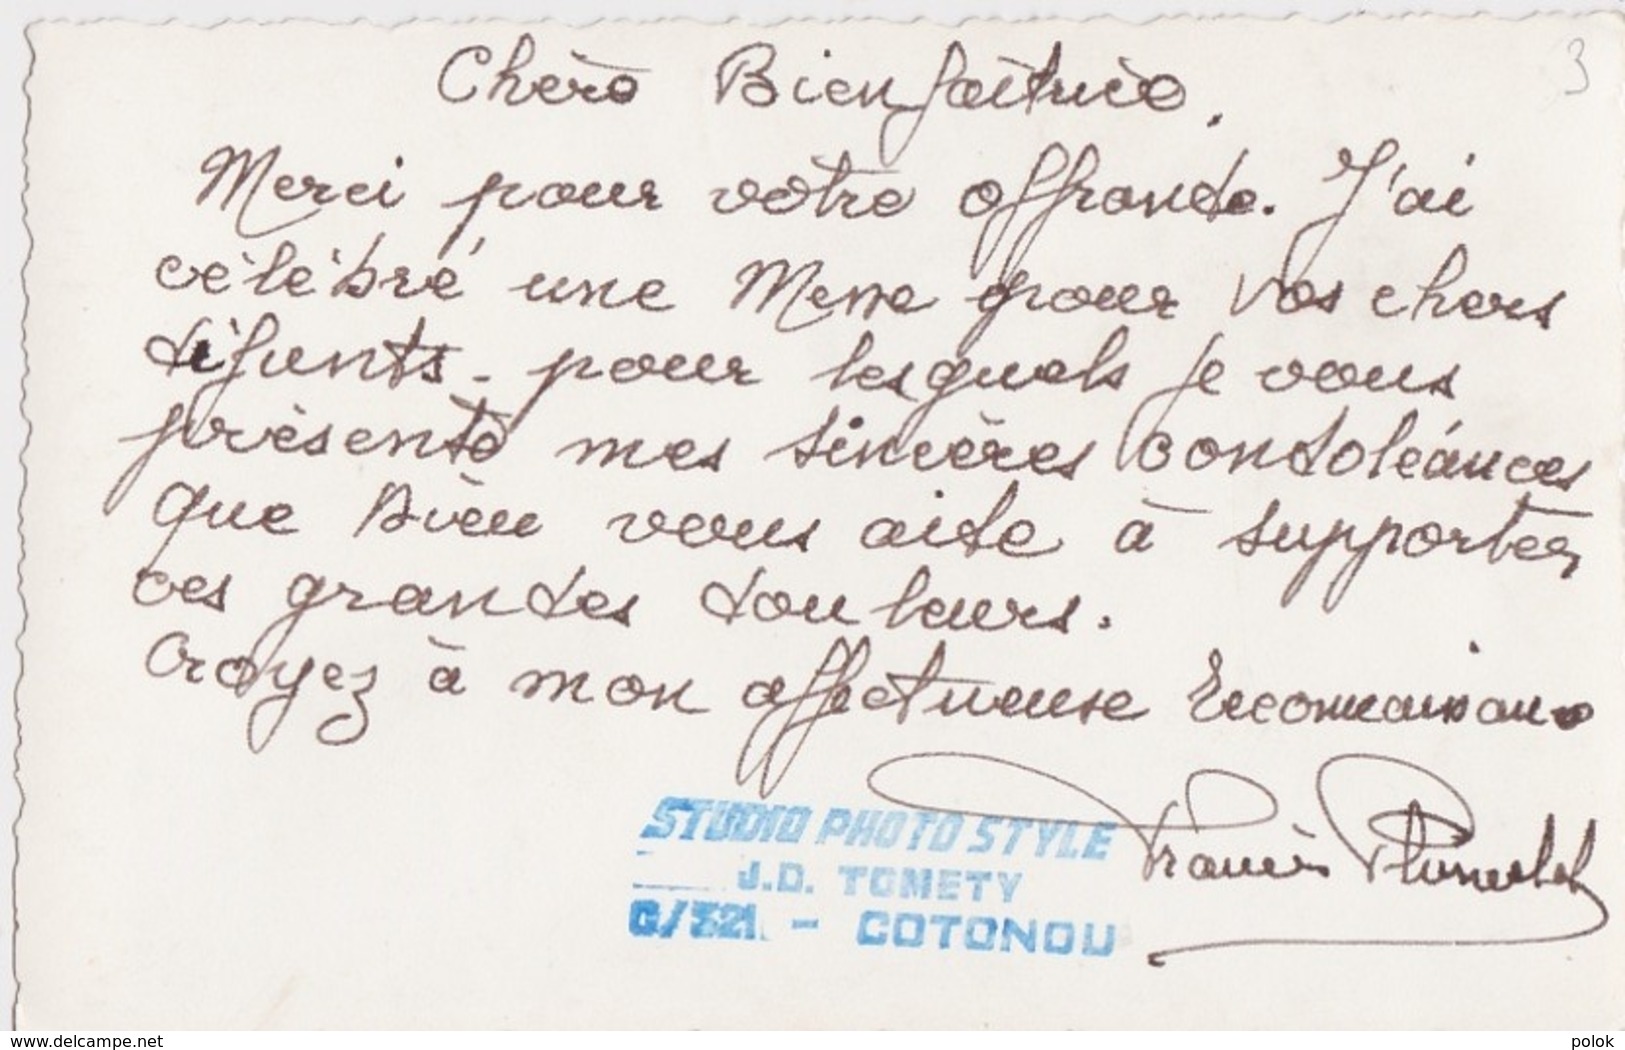 3
Chère Bienfaitrice,
Merci pour votre offrande. J'ai
célébré une Messe pour vos chers
défunts - pour lesquels je vous
présente mes sincères condoléances
que Dieu vous aide à supporter
ces grandes douleurs.
Croyez à mon affectueuse reconnaissance
Francis
STUDIO PHOTO STYLE
J.D. TOMETY
C/321 - COTONOU
www.delcampe.net
polok